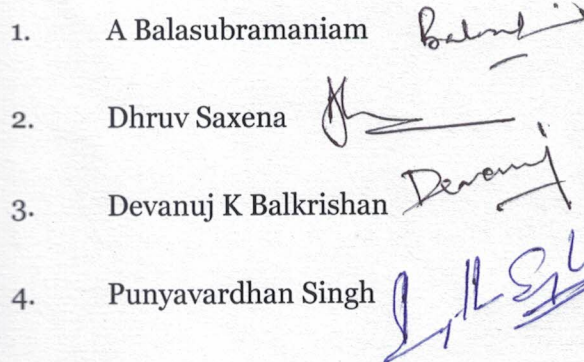 1. A Balasubramaniam
2. Dhruv Saxena
3. Devanuj K Balkrishan
4. Punyavardhan Singh